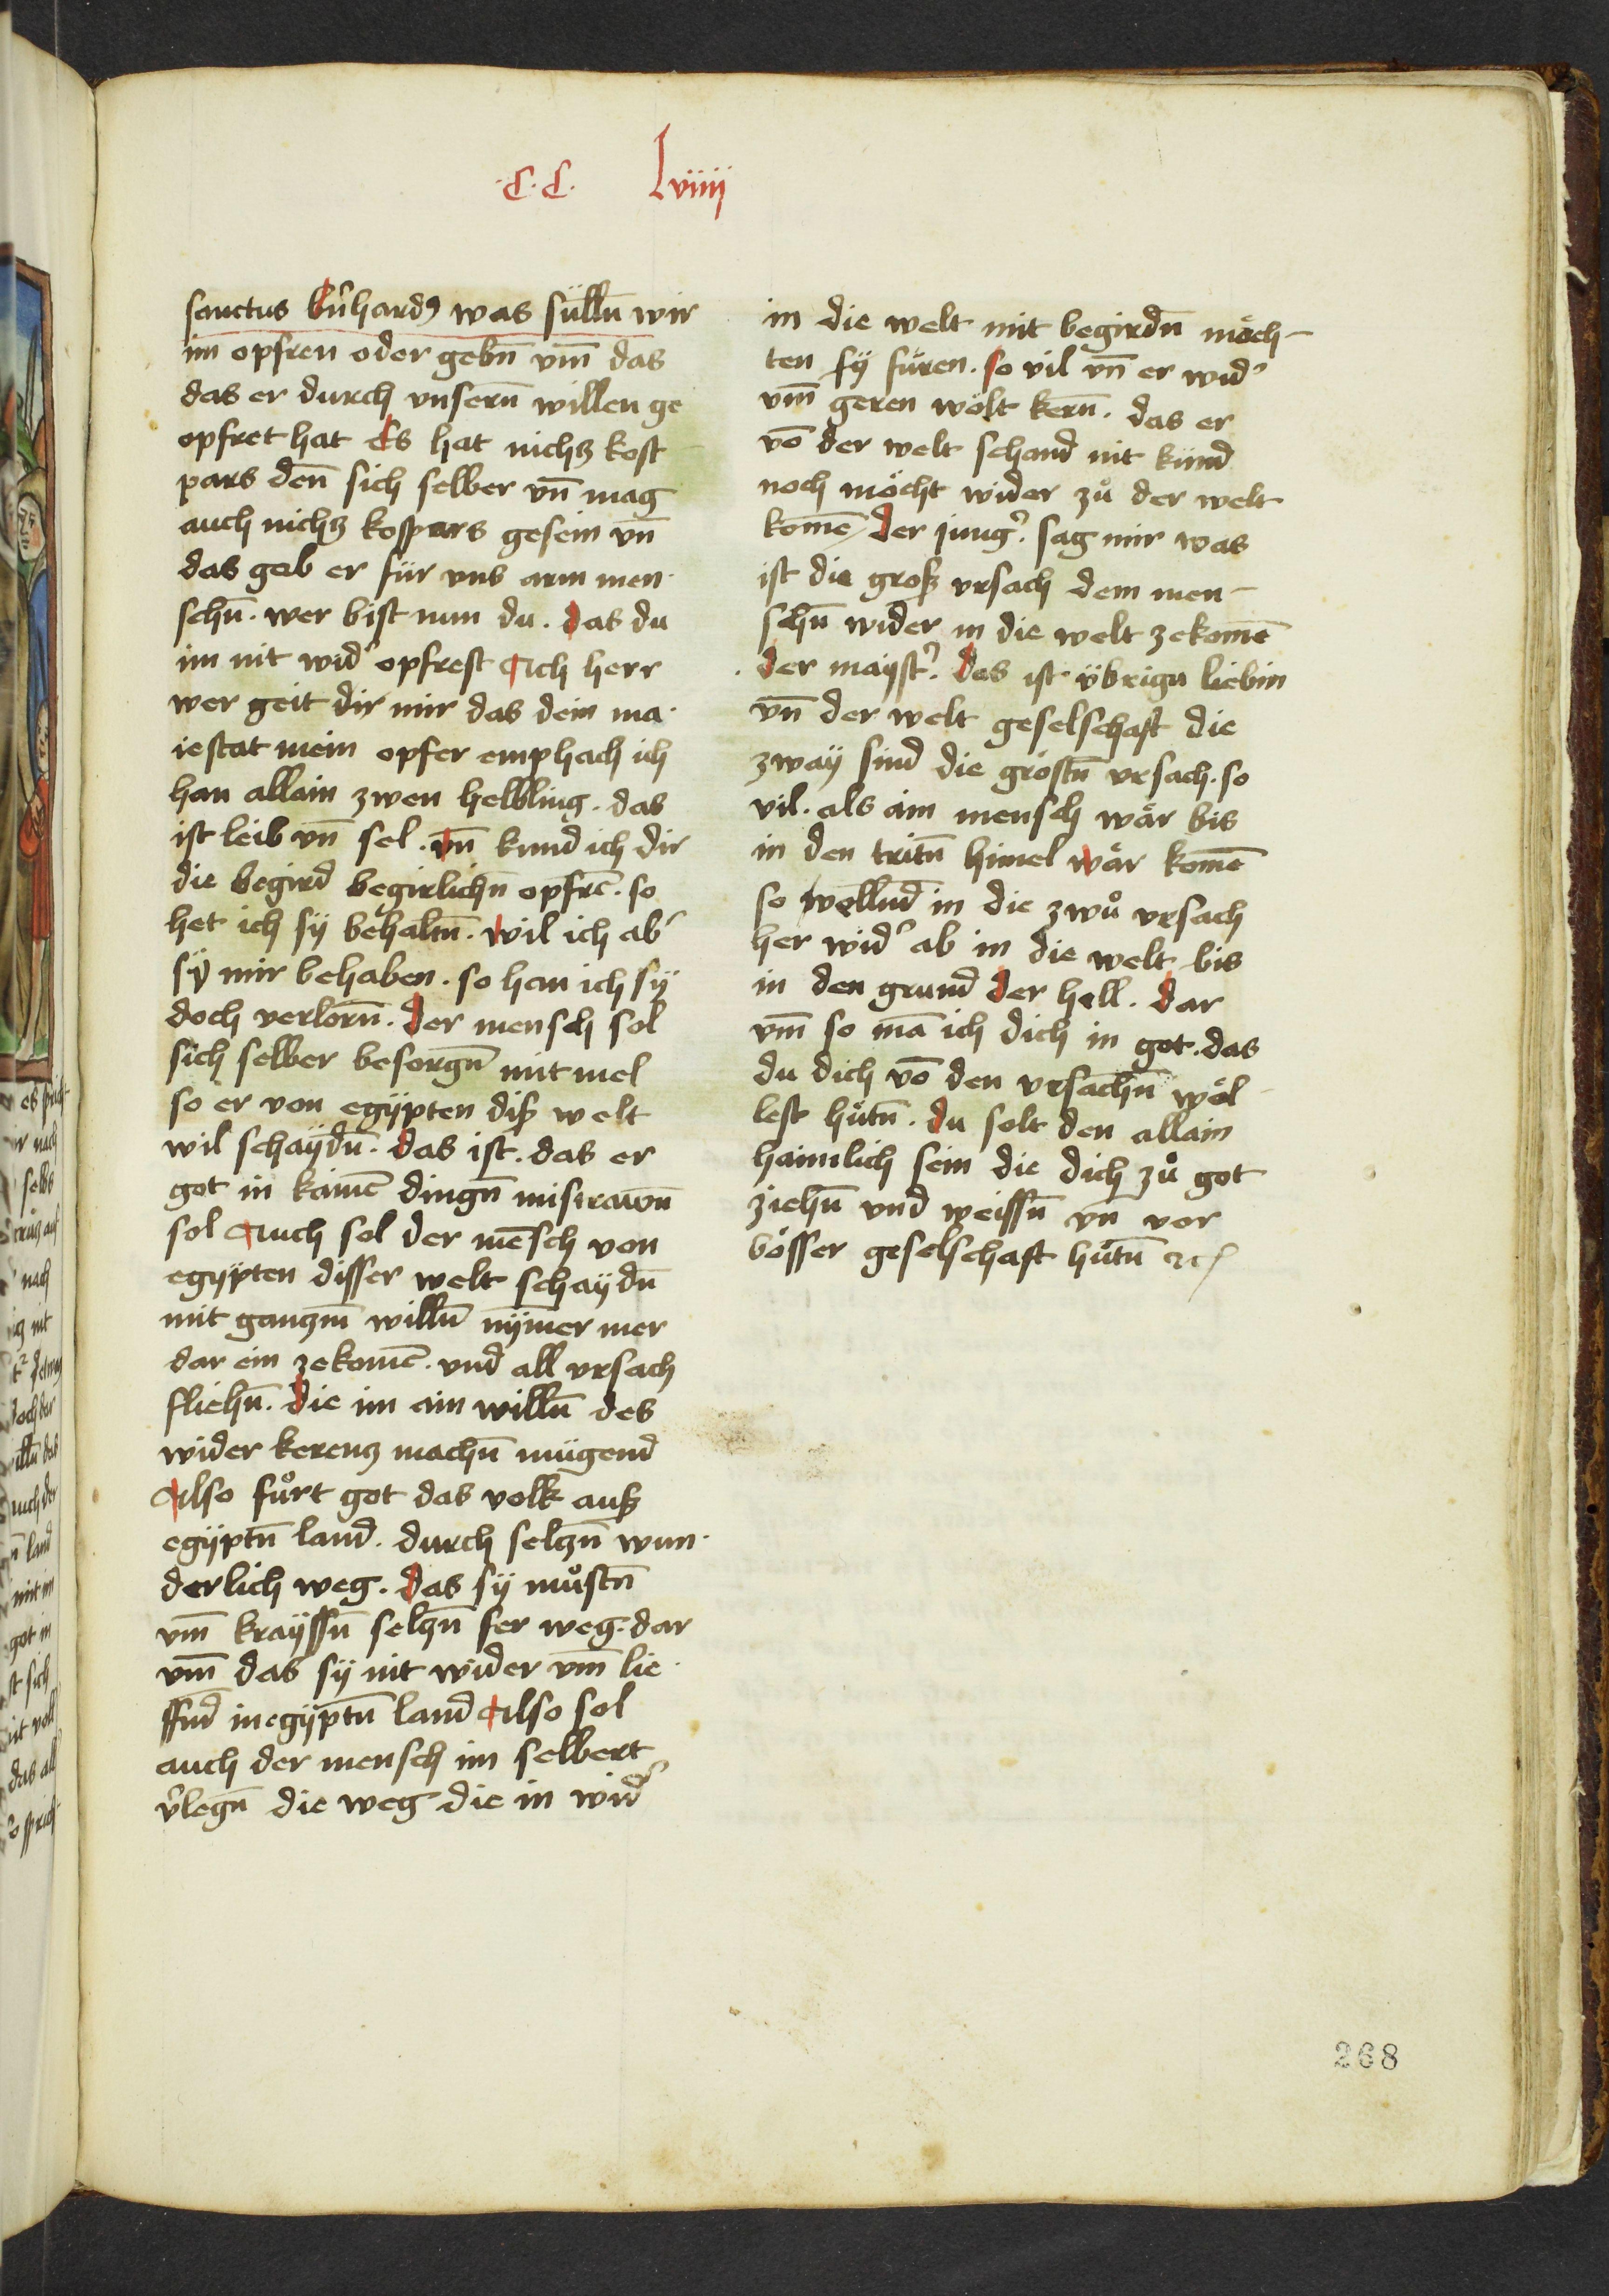 ·C·C· Lviiij
sanctus bn̄hardꝰ was süllñ wir
im opfren oder gebn̄ vm̄ das
das er durch vnsern̄ willen ge
opfret hat Es hat nichꜩ kost
pars den̄ sich selber vn̄ mag
auch nichꜩ kospars gesein vn̄
das geb er für vns arm men·
schn̄· wer bist nun du· das du
im nit wid' opfrest Ach herr
wer geit dir mir das dein ma·
iestat mein opfer emphach ich
han allain zwen helbling· das
ist leib vn̄ sel· vn̄ kund ich dir
die begird begirlichn̄ opfrē· so
het ich sÿ behaltn̄· wil ich ab'
sÿ mir behaben· so han ich sÿ
doch verlorn̄· der mensch sol
sich selber besorgn̄ mit mel
so er von egÿpten diß welt
wil schaÿdn̄· das ist· das er
got in kainē dingn̄ mistrawn̄
sol Auch sol der mēsch von
egÿpten disser welt schaÿdn̄
mit ganzm̄ willn̄ nÿmer mer
dar ein zekomē· vnd all vrsach
fliehn̄· die im ain willn̄ des
wider kerenꜩ machn̄ mügend
Also fůrt got das volk auß
egÿptn̄ land· durch selꜩn̄ wun·
derlich weg· das sÿ můstn̄
vm̄ kraÿssn̄ selꜩn̄ fer weg· dar
vm̄ das sÿ nit wider vm̄ lie·
ffnd in egÿptn̄ land Also sol
auch der mensch im selbert
v'legn̄ die weg die in wid'
in die welt mit begirdn̄ möch-
ten sÿ füren· so vil vn̄ er wid'
vm̄ geren wölt kern̄· das er
vō der welt schand nit künd
noch möcht wider zů der welt
komē/ der jung'· sag mir was
ist die groß vrsach dem men-
schn̄ wider in die welt zekomē
der maÿst'· das ist übrign liebin
vn̄ der welt geselschaft die
zwaÿ sind die gröstn̄ vrsach· so
vil· als aim mensch wär bis
in den tritn̄ himel wär komē
so wellnd in die zwů vrsach
her wid' ab in die welt bis
in den grund der hell· dar
vm̄ so mā ich dich in got· das
du dich vō den vrsachn̄ wöl
lest hütn̄· du solt den allain
haimlich sein die dich zů got
ziehn̄ vnd weissn̄ vn̄ vor
bösser geselschaft hütn̄ ꝛc
268